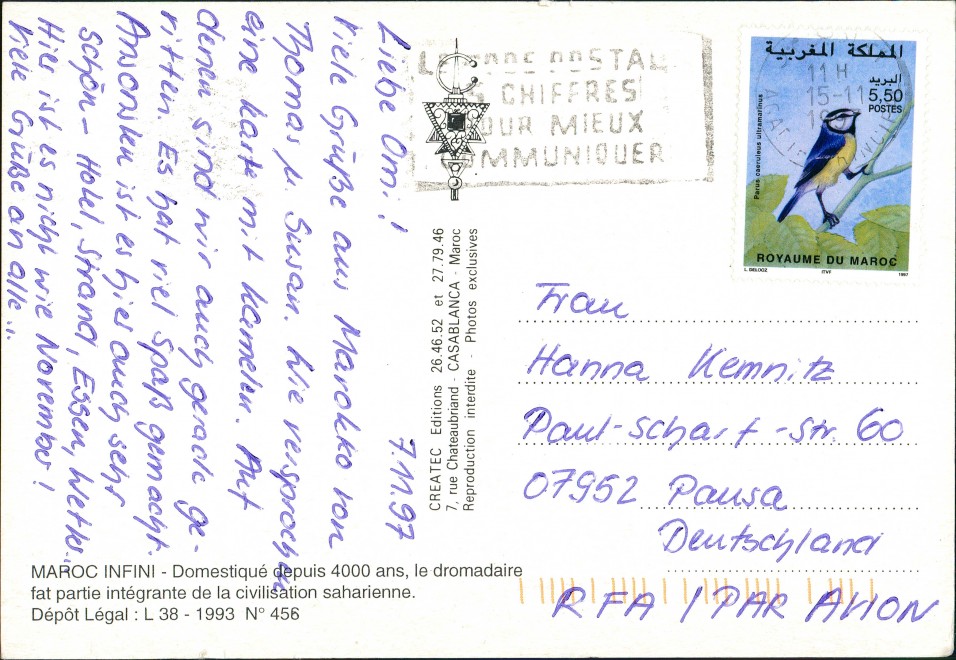 Liebe Omi!
7.11.97
Viele Grüße aus Marokko von
Thomas u. Susan. Wie versprochen
eine Karte mit Kamelen. Auf
denen sind wir auch gerade ge-
ritten. Es hat viel Spaß gemacht.
Ansonsten ist es hier auch sehr
schön - Hotel, Strand, Essen, Wetter...
Hier ist es nicht wie November!
Viele Grüße an alle...
POSTAL
CHIFFRES
POUR MIEUX
COMMUNIQUER
المملكة المغربية
البريد
5,50
POSTES
Parus caeruleus ultramarinus
ROYAUME DU MAROC
L. DELOOZ
ITVF
1997
11 H
15-11
CREATEC Editions 26.46.52 et 27.79.46
7, rue Chateaubriand - CASABLANCA - Maroc
Reproduction interdite - Photos exclusives
Frau
Hanna Kemnitz
Paul-Scharf-Str. 60
07952 Pausa
Deutschland
RFA / PAR AVION
MAROC INFINI - Domestiqué depuis 4000 ans, le dromadaire
fat partie intégrante de la civilisation saharienne.
Dépôt Légal : L 38 - 1993 N° 456